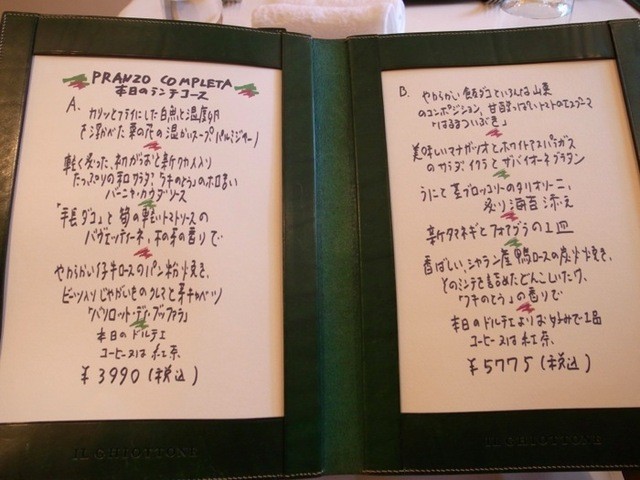 PRANZO COMPLETA
本日のランチコース
A.
カリッとフライにした白魚と温度卵
を浮かべた菜の花の温かいスープ、パルミジャーノ
軽く炙った、初がつおと新ワカメ入り
たっぷりの和サラダ、ふきのとうのホロ苦い
バーニャカウダソース
「手長ダコ」と筍の軽いトマトソースの
バヴェッティーネ、木の芽の香りで
やわらかい仔牛ロースのパン粉焼き、
ビーツ入りじゃがいものクレマと芽キャベツ
本日のドルチェ
コーヒー又は紅茶
¥3990(税込)
B.
やわらかい飯ダコといろんな山菜
のコンポジション、甘酸っぱいトマトのエスプーマ
美味しいマナガツオとホワイトアスパラガス
のサラダ、イクラとザバイオーネグラタン
うにと茎ブロッコリーのタリオリーニ、
炙り海苔添え
新タマネギとフォアグラの1皿
香ばしい、シャラン産鴨ロースの炭火焼き、
の香りで
本日のドルチェよりお好みで1品
コーヒー又は紅茶
¥5775(税込)
IL GHIOTTONE
IL GHIOTTONE